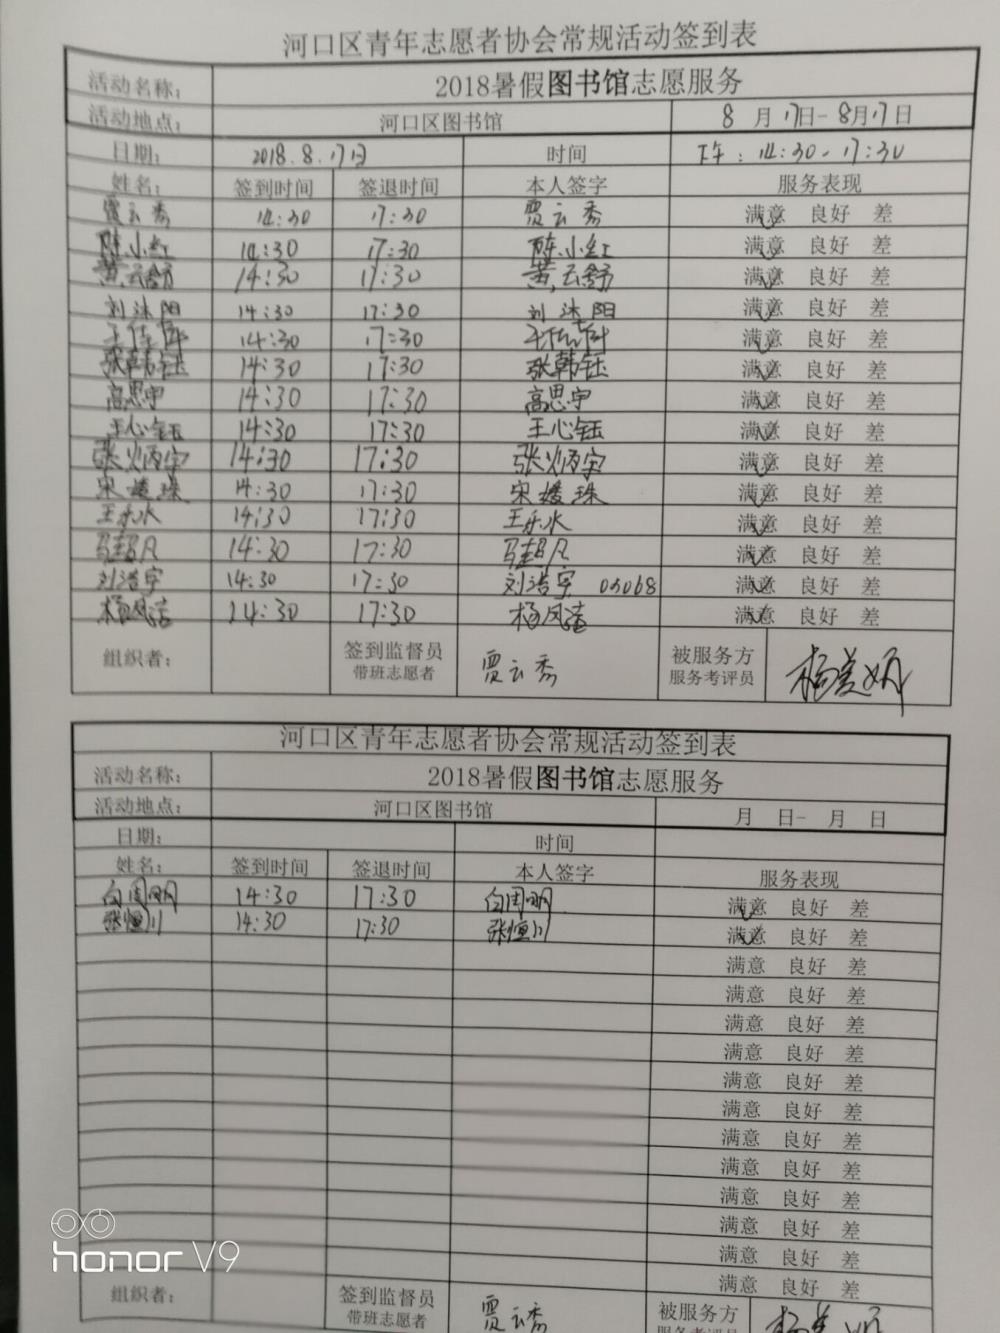 河口区青年志愿者协会常规活动签到表
活动名称： 2018暑假图书馆志愿服务
活动地点： 河口区图书馆 8月17日-8月17日
日期： 2018.8.17日 时间 下午：14:30-17:30
姓名： 签到时间 签退时间 本人签字 服务表现
贾云秀 14:30 17:30 贾云秀 满意 良好 差
陈小红 14:30 17:30 陈小红 满意 良好 差
黄云舒 14:30 17:30 黄云舒 满意 良好 差
刘沐阳 14:30 17:30 刘沐阳 满意 良好 差
14:30 17:30 满意 良好 差
张韩钰 14:30 17:30 张韩钰 满意 良好 差
高思宇 14:30 17:30 高思宇 满意 良好 差
王心钰 14:30 17:30 王心钰 满意 良好 差
张炳宇 14:30 17:30 张炳宇 满意 良好 差
宋媛珠 14:30 17:30 宋媛珠 满意 良好 差
王乐水 14:30 17:30 王乐水 满意 良好 差
马超凡 14:30 17:30 马超凡 满意 良好 差
刘浩宇 14:30 17:30 刘浩宇 05068 满意 良好 差
杨凤洁 14:30 17:30 杨凤洁 满意 良好 差
组织者： 签到监督员 贾云秀 被服务方 杨美娟
带班志愿者 服务考评员
河口区青年志愿者协会常规活动签到表
活动名称： 2018暑假图书馆志愿服务
活动地点： 河口区图书馆 月 日- 月 日
日期： 时间
姓名： 签到时间 签退时间 本人签字 服务表现
白周明 14:30 17:30 白周明 满意 良好 差
张恒川 14:30 17:30 张恒川 满意 良好 差
满意 良好 差
满意 良好 差
满意 良好 差
满意 良好 差
满意 良好 差
满意 良好 差
满意 良好 差
满意 良好 差
满意 良好 差
满意 良好 差
满意 良好 差
满意 良好 差
组织者： 签到监督员 贾云秀 被服务方 杨美娟
带班志愿者 服务考评员
honor V9